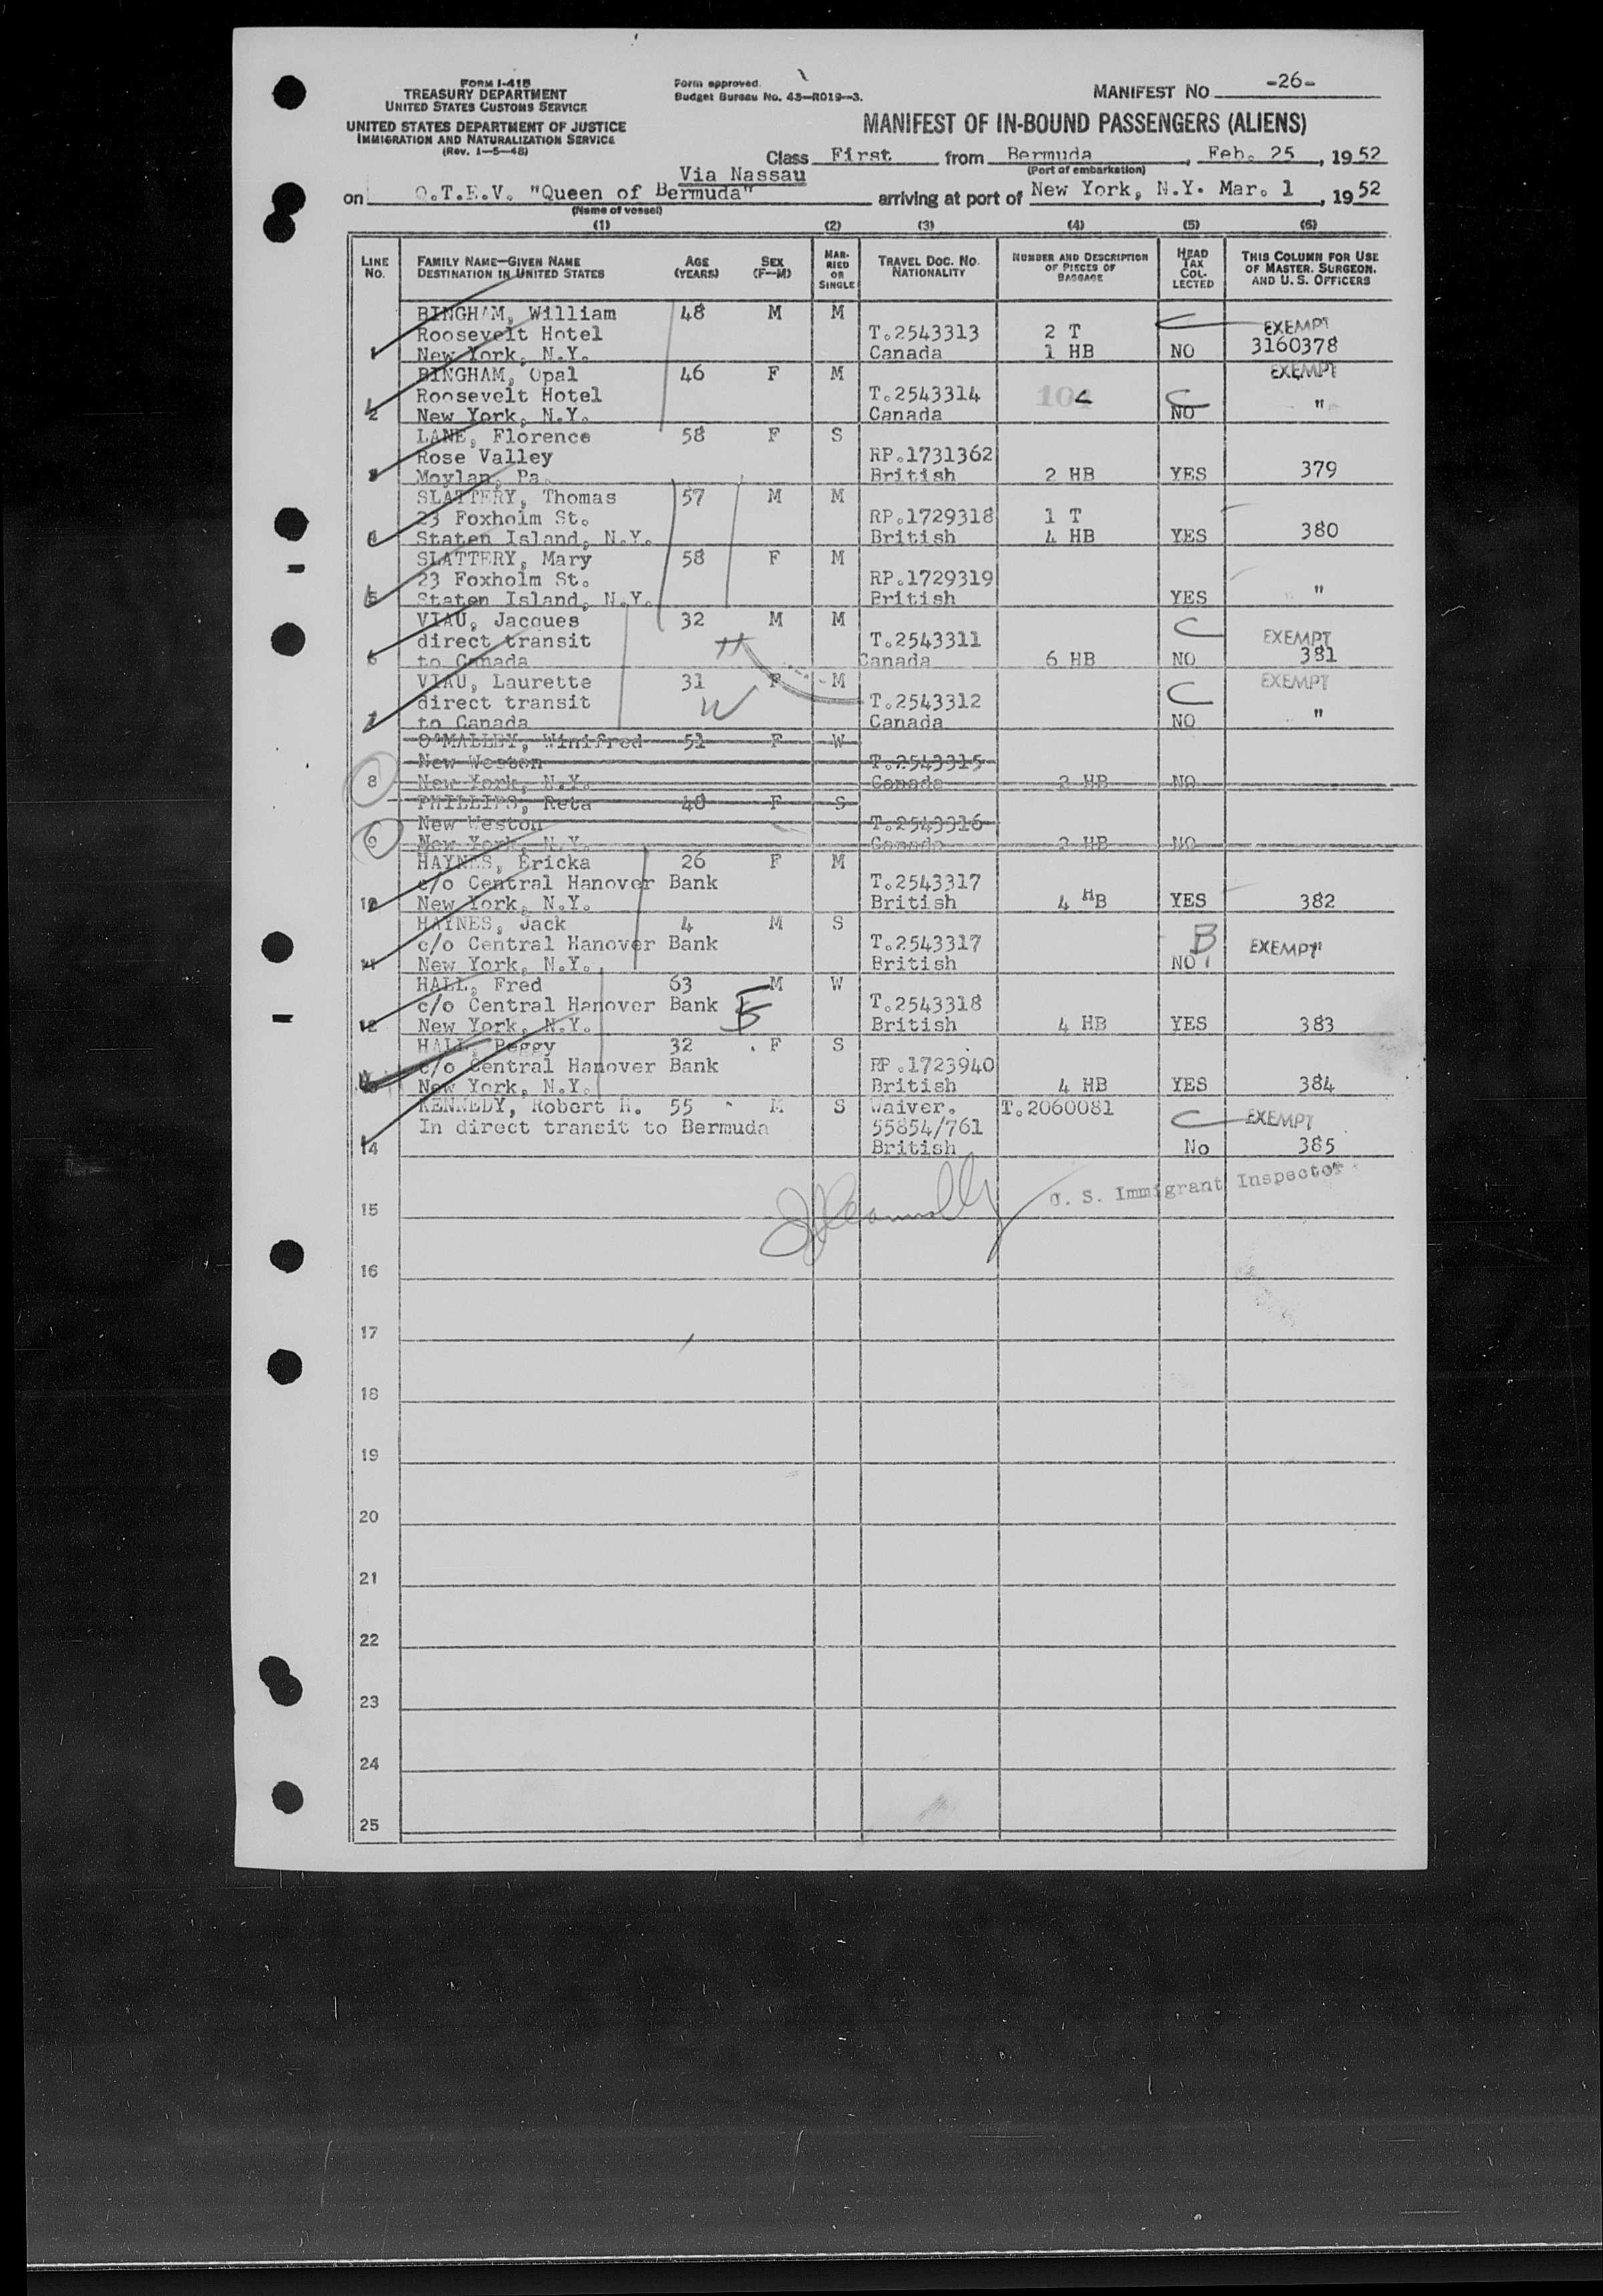 FORM I-418
TREASURY DEPARTMENT
UNITED STATES CUSTOMS SERVICE
UNITED STATES DEPARTMENT OF JUSTICE
IMMIGRATION AND NATURALIZATION SERVICE
(Rev. 1-5-48)
Form approved.
Budget Bureau No. 43-R019-3.
MANIFEST NO -26-
MANIFEST OF IN-BOUND PASSENGERS (ALIENS)
Class First from Bermuda, Feb. 25, 1952
(Port of embarkation)
Via Nassau
on Q.T.E.V. "Queen of Bermuda" arriving at port of New York, N.Y. Mar. 1, 1952
(Name of vessel)
(1) (2) (3) (4) (5) (6)
LINE NO. FAMILY NAME—GIVEN NAME DESTINATION IN UNITED STATES AGE (YEARS) SEX (F—M) MARRIED OR SINGLE TRAVEL DOC. NO. NATIONALITY NUMBER AND DESCRIPTION OF PIECES OF BAGGAGE HEAD TAX COLLECTED THIS COLUMN FOR USE OF MASTER, SURGEON, AND U. S. OFFICERS
BINGHAM, William 48 M M
Roosevelt Hotel T.2543313 2 T C EXEMPT
1 New York, N.Y. Canada 1 HB NO 3160378
BINGHAM, Opal 46 F M EXEMPT
Roosevelt Hotel T.2543314 C "
2 New York, N.Y. Canada NO
LANE, Florence 58 F S
Rose Valley RP.1731362
3 Moylan, Pa. British 2 HB YES 379
SLATTERY, Thomas 57 M M
23 Foxholm St. RP.1729318 1 T
4 Staten Island, N.Y. British 4 HB YES 380
SLATTERY, Mary 58 F M
23 Foxholm St. RP.1729319
5 Staten Island, N.Y. British YES "
VIAU, Jacques 32 M M C
direct transit T.2543311 EXEMPT
6 to Canada Canada 6 HB NO 381
VIAU, Laurette 31 F M C EXEMPT
direct transit W T.2543312
7 to Canada Canada NO "
O'MALLEY, Winifred 51 F W
New Weston T.2543315
8 New York, N.Y. Canada 2 HB NO
PHILLIPS, Reta 48 F S
New Weston T.2543316
9 New York, N.Y. Canada 2 HB NO
HAYNES, Ericka 26 F M
c/o Central Hanover Bank T.2543317
10 New York, N.Y. British 4 HB YES 382
HAYNES, Jack 4 M S
c/o Central Hanover Bank T.2543317 B EXEMPT "
11 New York, N.Y. British NO
HALL, Fred 63 M W
c/o Central Hanover Bank T.2543318
12 New York, N.Y. British 4 HB YES 383
HALL, Peggy 32 F S
c/o Central Hanover Bank RP.1723940
13 New York, N.Y. British 4 HB YES 384
KENNEDY, Robert H. 55 M S Waiver. T.2060081
In direct transit to Bermuda 55854/761 C EXEMPT
14 British No 385
U. S. Immigrant Inspector
15
16
17
18
19
20
21
22
23
24
25